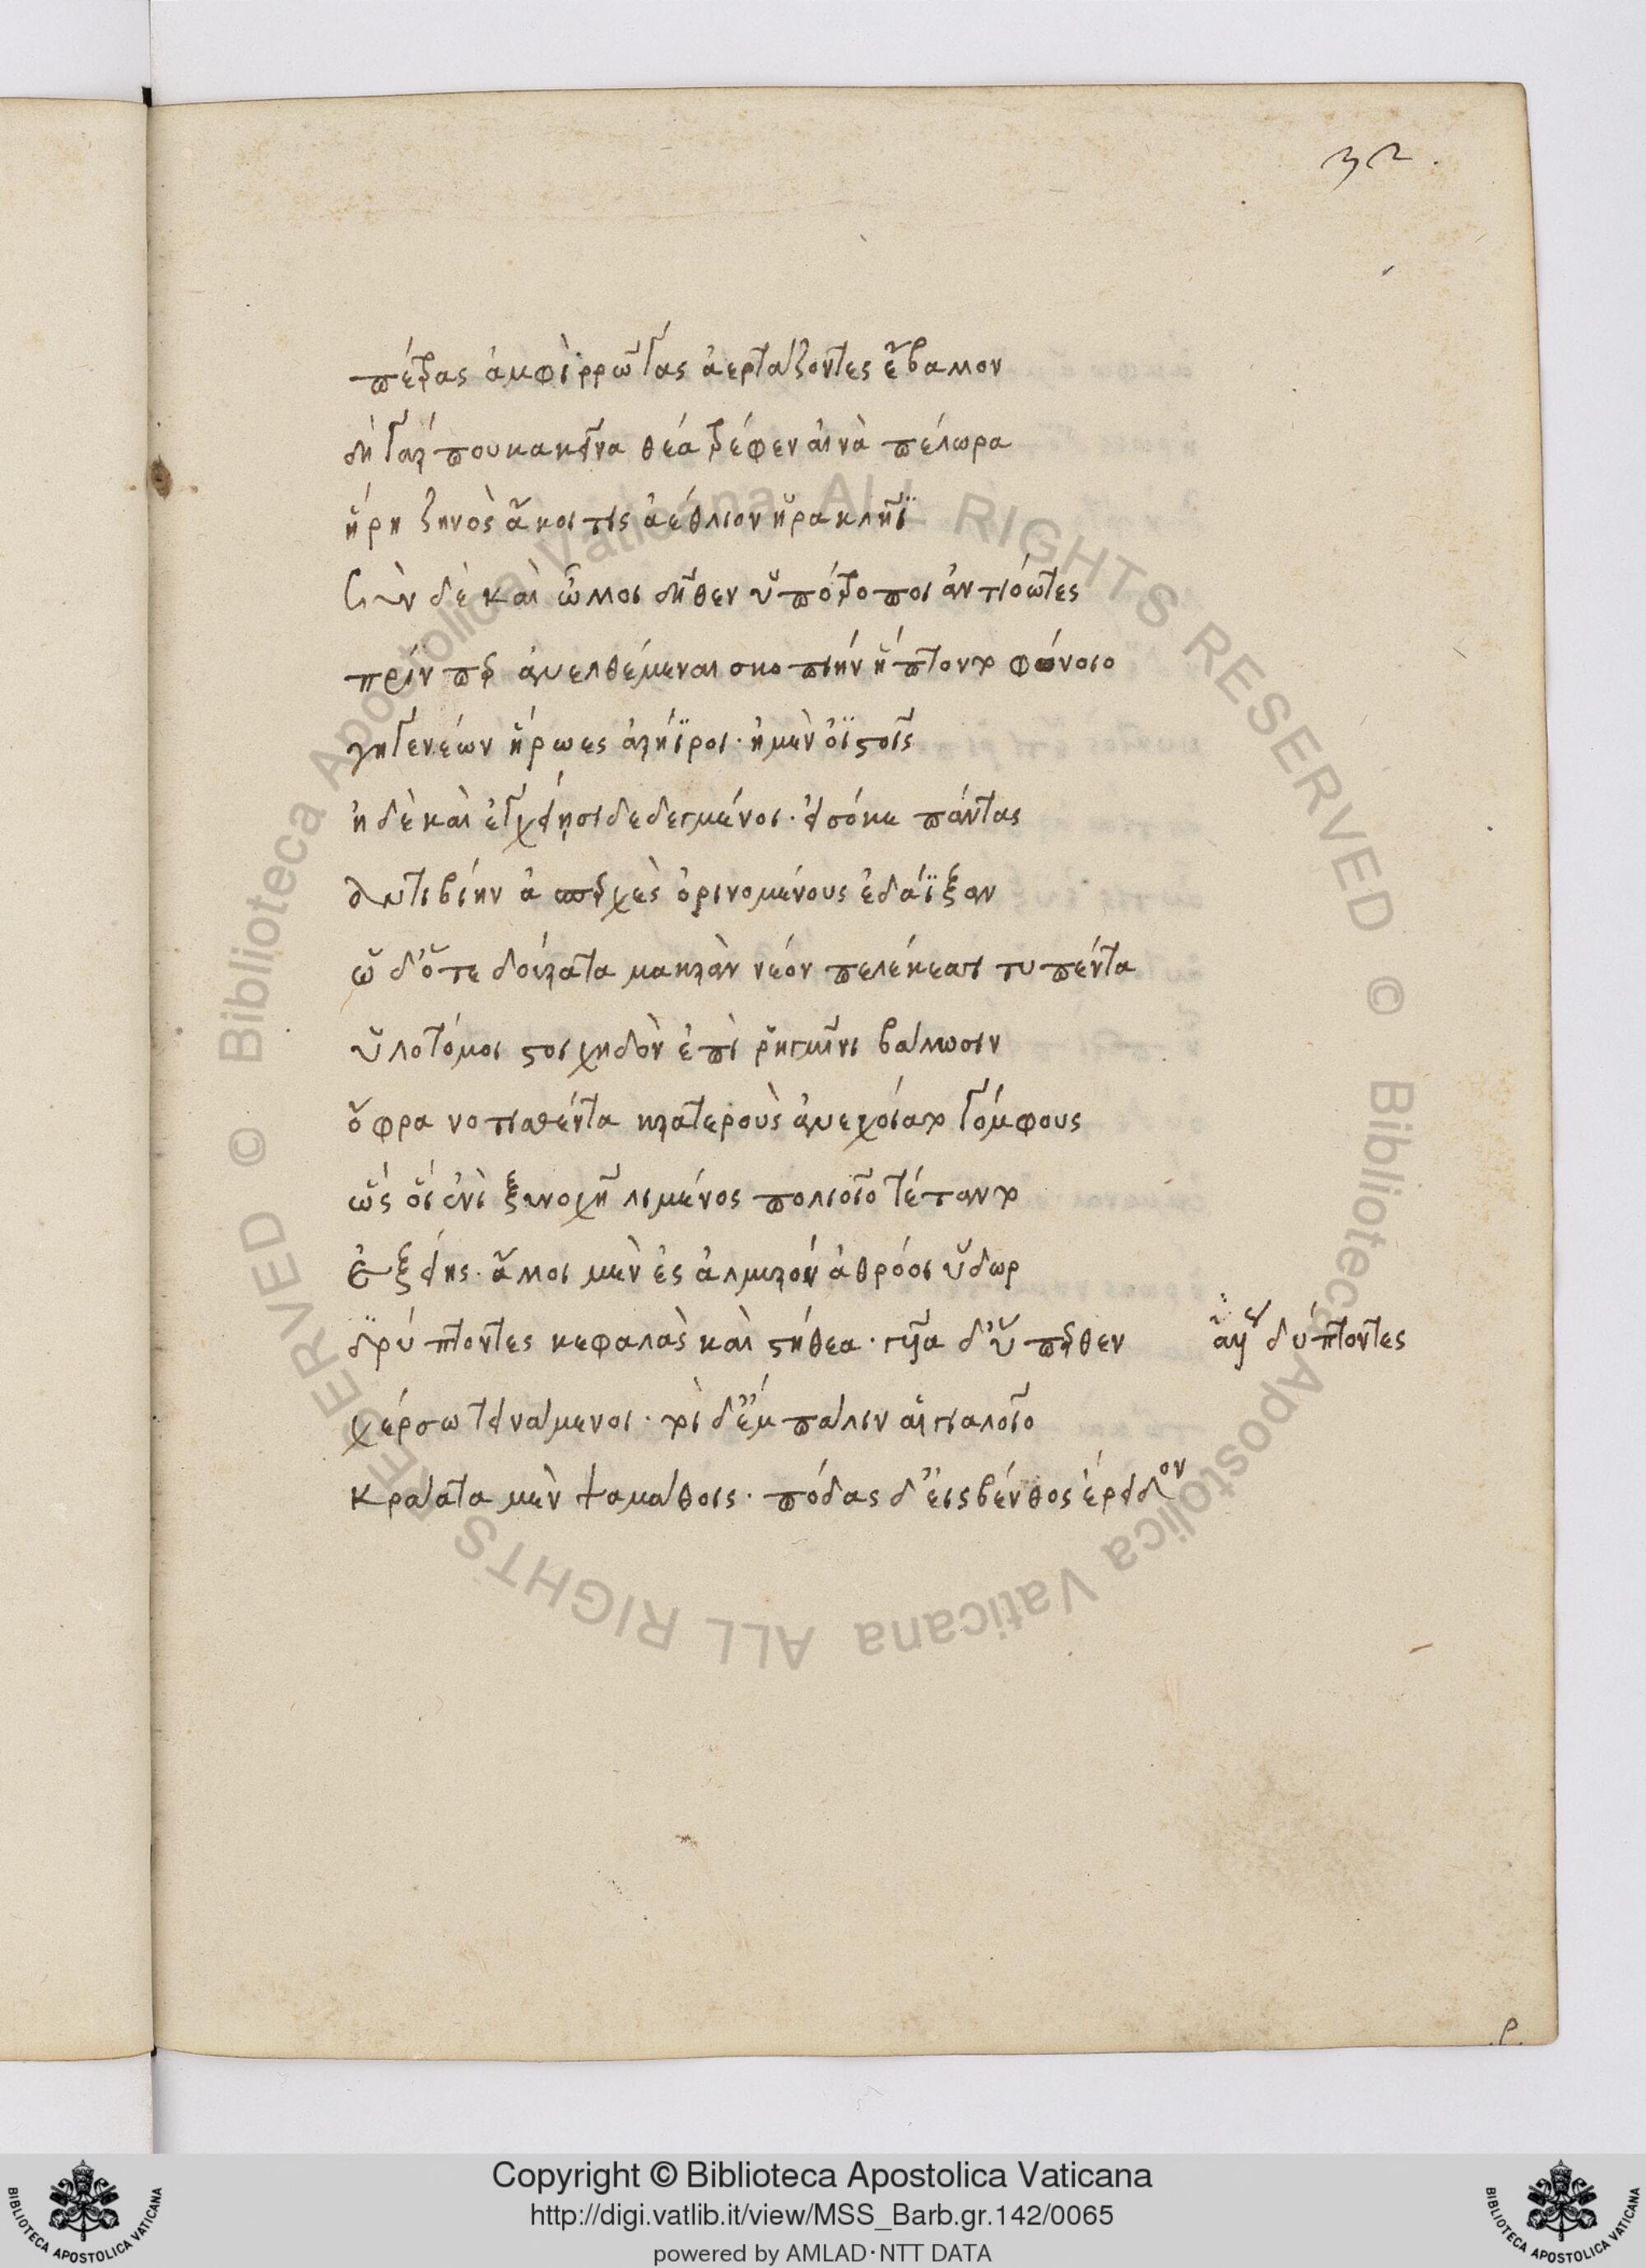 32.
πέτρας ἀμφὶρρῶγας ἀερτάζοντες ἔβαλλον
δὴ γάρ που κακεῖνα θέα τρέφεν αἰνὰ πέλωρα
ἥρη ζηνὸς ἄκοιτις ἀέθλιον ἡρακλῆϊ
σὺν δὲ καὶ ὧλλοι δῆθεν ὑπότροποι ἀντιόωντες
πρίν περ ἀνελθέμεναι σκοπιήν ἥπτοντο φόνοιο
γηγενέων ἥρωες ἀρήϊροι· ἠμὲν ὀϊστοῖς
ἠδὲ καὶ ἐγχείῃσι δεδεγμένοι· εἰσόκε πάντας
ἀντιβίην ἀσπερχὲς ὀρινομένους ἐδάϊξαν
ὡ δ' ὅτε δούρατα μακρὰν νέον πελέκεσι τυπέντα
ὑλοτόμοι στοιχηδὸν ἐπὶ ῥηγμῖνι βάλλωσιν
ὄφρα νοτισθέντα κρατεροὺς ἀνεχοίατο γόμφους
ὥς οἵ ἐνὶ ξυνοχῆ λιμένος πολιοῖο τέταντο
ἑξείης· ἄλλοι μὲν ἐς ἁλμυρόν ἀθρόοι ὕδωρ
δρύπτοντες κεφαλὰς καὶ στήθεα· γυῖα δ' ὕπερθεν
ἀντὶ τοῦ δύπτοντες
χέρσω τεινάμενοι· τοὶ δ' ἔμπαλιν αἰγιαλοῖο
κράατα μὲν ψαμάθοις· πόδας δ' εἰς βένθος ἔρειδον
ρ
Copyright © Biblioteca Apostolica Vaticana
http://digi.vatlib.it/view/MSS_Barb.gr.142/0065
powered by AMLAD·NTT DATA
© Biblioteca Apostolica Vaticana ALL RIGHTS RESERVED
© Biblioteca Apostolica Vaticana ALL RIGHTS RESERVED
BIBLIOTECA APOSTOLICA VATICANA
BIBLIOTECA APOSTOLICA VATICANA